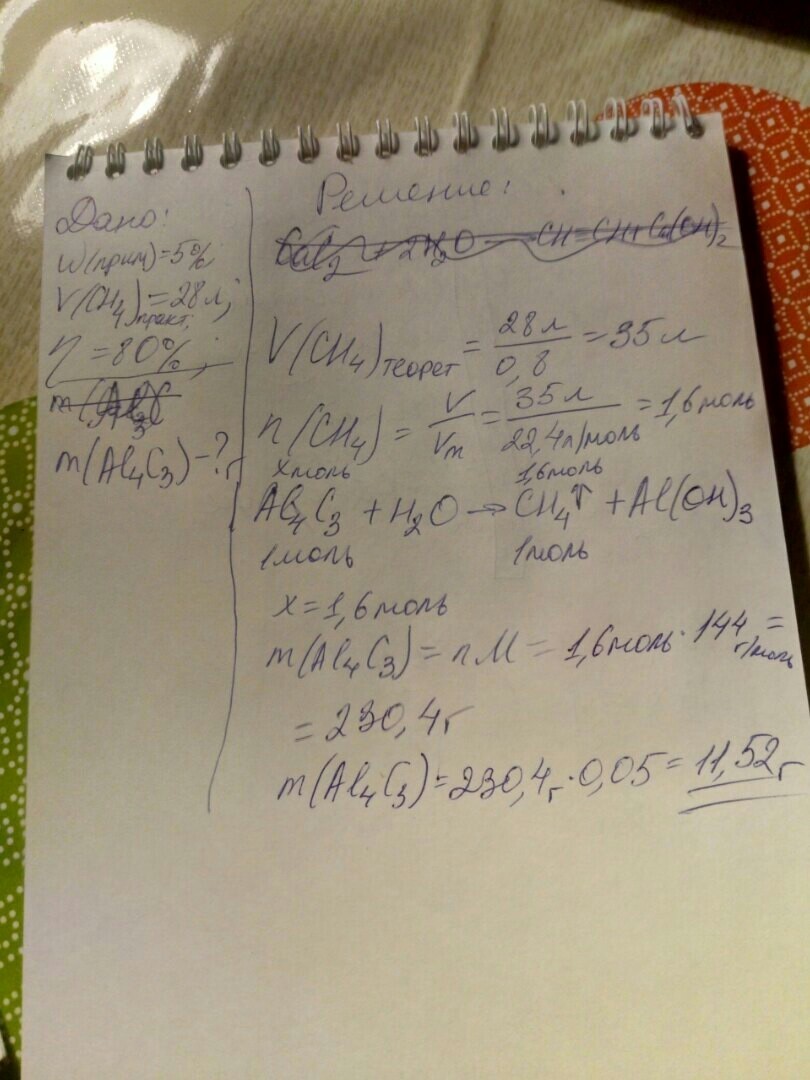 Дано:
w(прим)=5%
V(CH₄)практ.=28л;
η=80%;
m(Al₄C₃)-?г
Решение:
CaC₂ + 2H₂O → CH≡CH+Ca(OH)₂
V(CH₄)теорет = 28л/0,8 = 35л
n(CH₄) = V/Vm = 35л/22,4л/моль = 1,6моль
x моль 1,6моль
Al₄C₃ + H₂O → CH₄↑ + Al(OH)₃
1моль 1моль
x=1,6моль
m(Al₄C₃) = nM = 1,6моль · 144 г/моль =
= 230,4г
m(Al₄C₃) = 230,4г · 0,05 = 11,52г